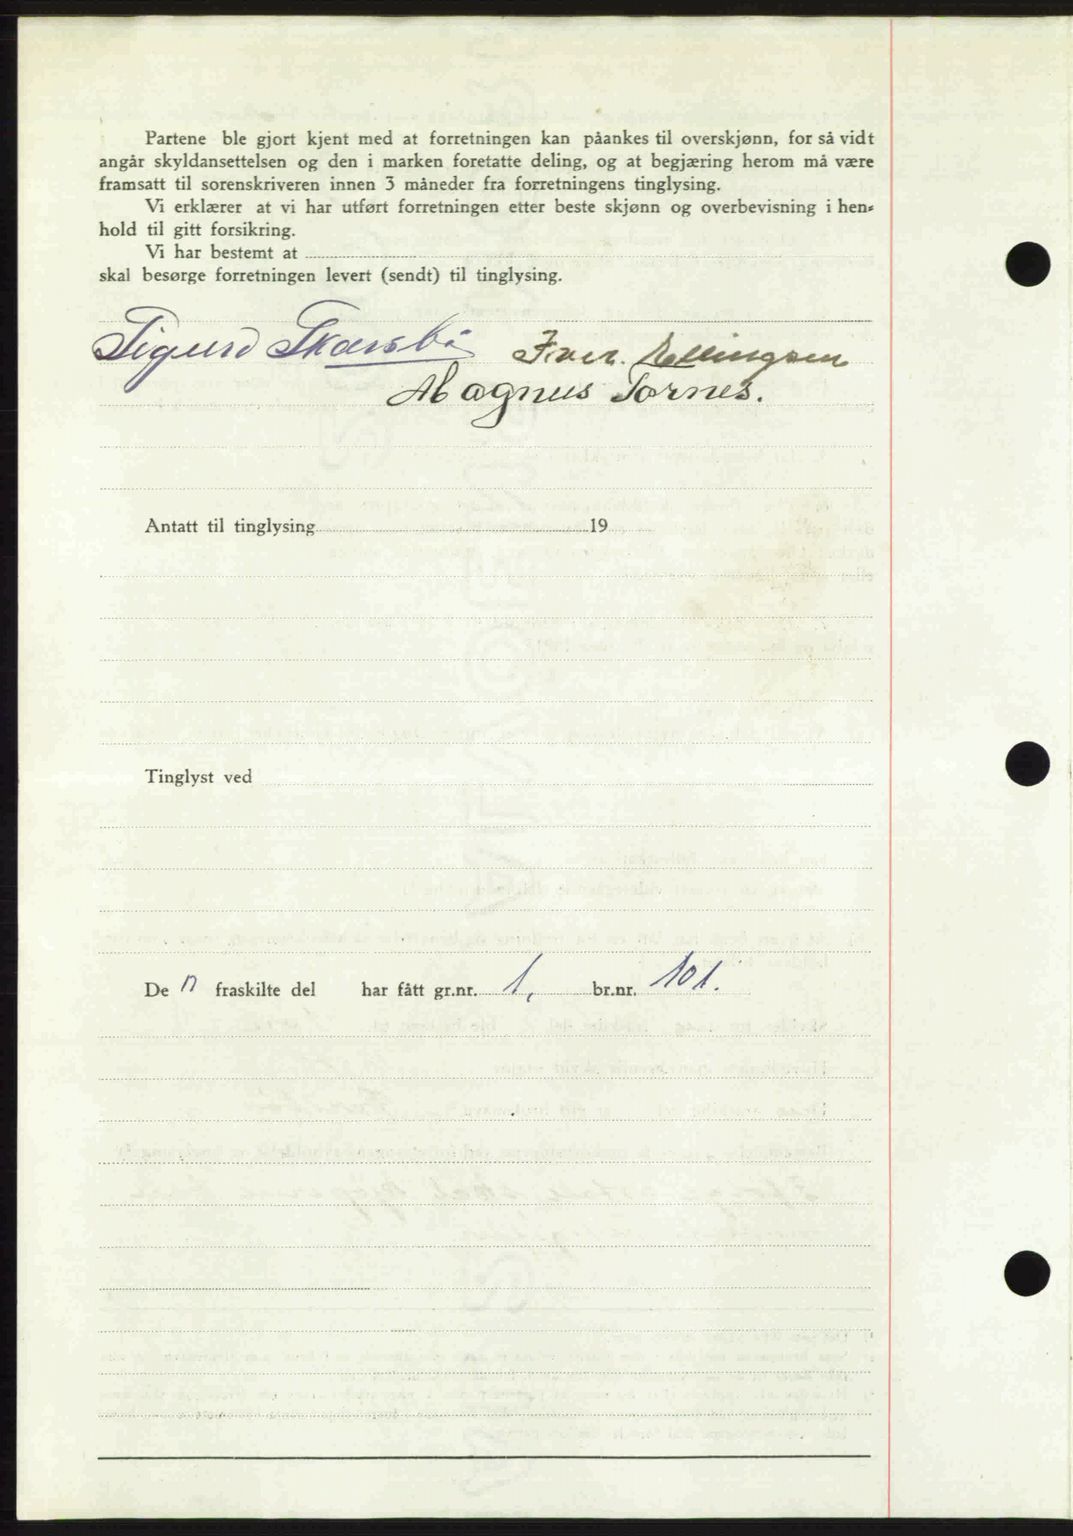 Partene ble gjort kjent med at forretningen kan påankes til overskjønn, for så vidt
angår skyldansettelsen og den i marken foretatte deling, og at begjæring herom må være
framsatt til sorenskriveren innen 3 måneder fra forretningens tinglysing.
Vi erklærer at vi har utført forretningen etter beste skjønn og overbevisning i hen-
hold til gitt forsikring.
Vi har bestemt at
skal besørge forretningen levert (sendt) til tinglysing.
Sigurd Skarsbö Iver Ellingsen
Magnus Tornes.
Antatt til tinglysing 19
Tinglyst ved
De n fraskilte del har fått gr.nr. 1, br.nr. 101.